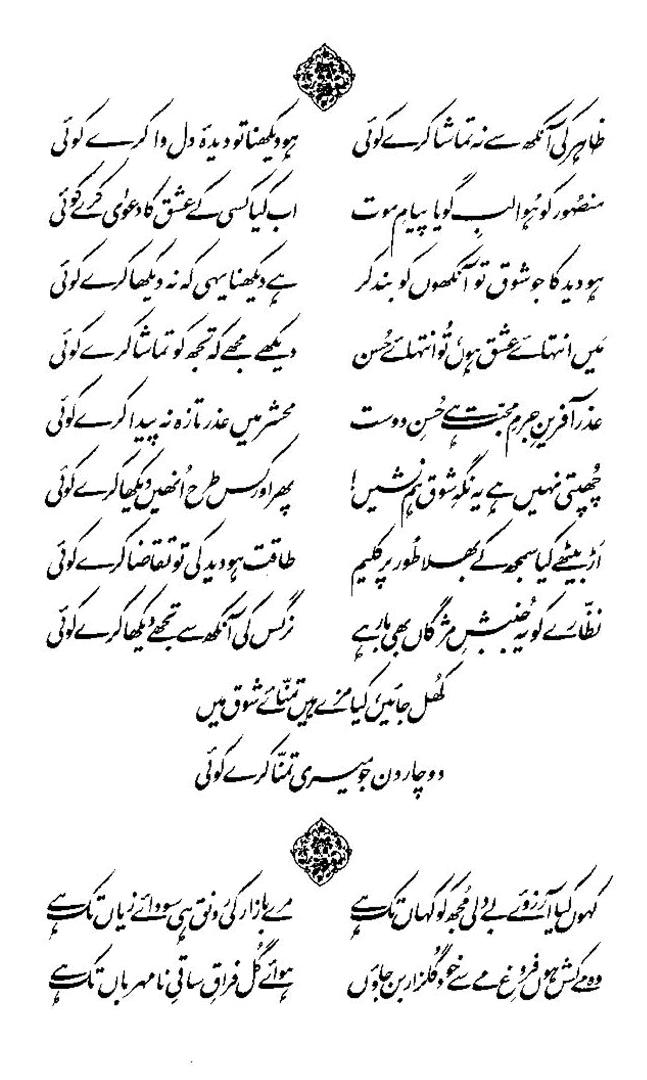 ظاہر کی آنکھ سے نہ تماشا کرے کوئی ہو دیکھنا تو دیدۂ دل وا کرے کوئی
منصُور کو ہُوا لبِ گویا پیامِ موت اب کیا کسی کے عشق کا دعویٰ کرے کوئی
ہو دید کا جو شوق تو آنکھوں کو بند کر ہے دیکھنا یہی کہ نہ دیکھا کرے کوئی
مَیں انتہائے عشق ہوں، تُو انتہائے حُسن دیکھے مجھے کہ تجھ کو تماشا کرے کوئی
عذر آفرینِ جرمِ محبّت ہے حُسنِ دوست محشر میں عذرِ تازہ نہ پیدا کرے کوئی
چھُپتی نہیں ہے یہ نگہِ شوق ہم نشیں! پھر اور کس طرح اُنھیں دیکھا کرے کوئی
اَڑ بیٹھے کیا سمجھ کے بھلا طُور پر کلیم طاقت ہو دید کی تو تقاضا کرے کوئی
نظّارے کو یہ جُنبشِ مژگاں بھی بار ہے نرگس کی آنکھ سے تجھے دیکھا کرے کوئی
کھُل جائیں، کیا مزے ہیں تمنّائے شوق میں
دو چار دن جو میری تمنّا کرے کوئی
کہوں کیا آرزوئے بے دلی مُجھ کو کہاں تک ہے مرے بازار کی رونق ہی سودائے زیاں تک ہے
وہ مے کش ہوں فروغِ مے سے خود گُلزار بن جاؤں ہوائے گُل فراقِ ساقیِ نامہرباں تک ہے